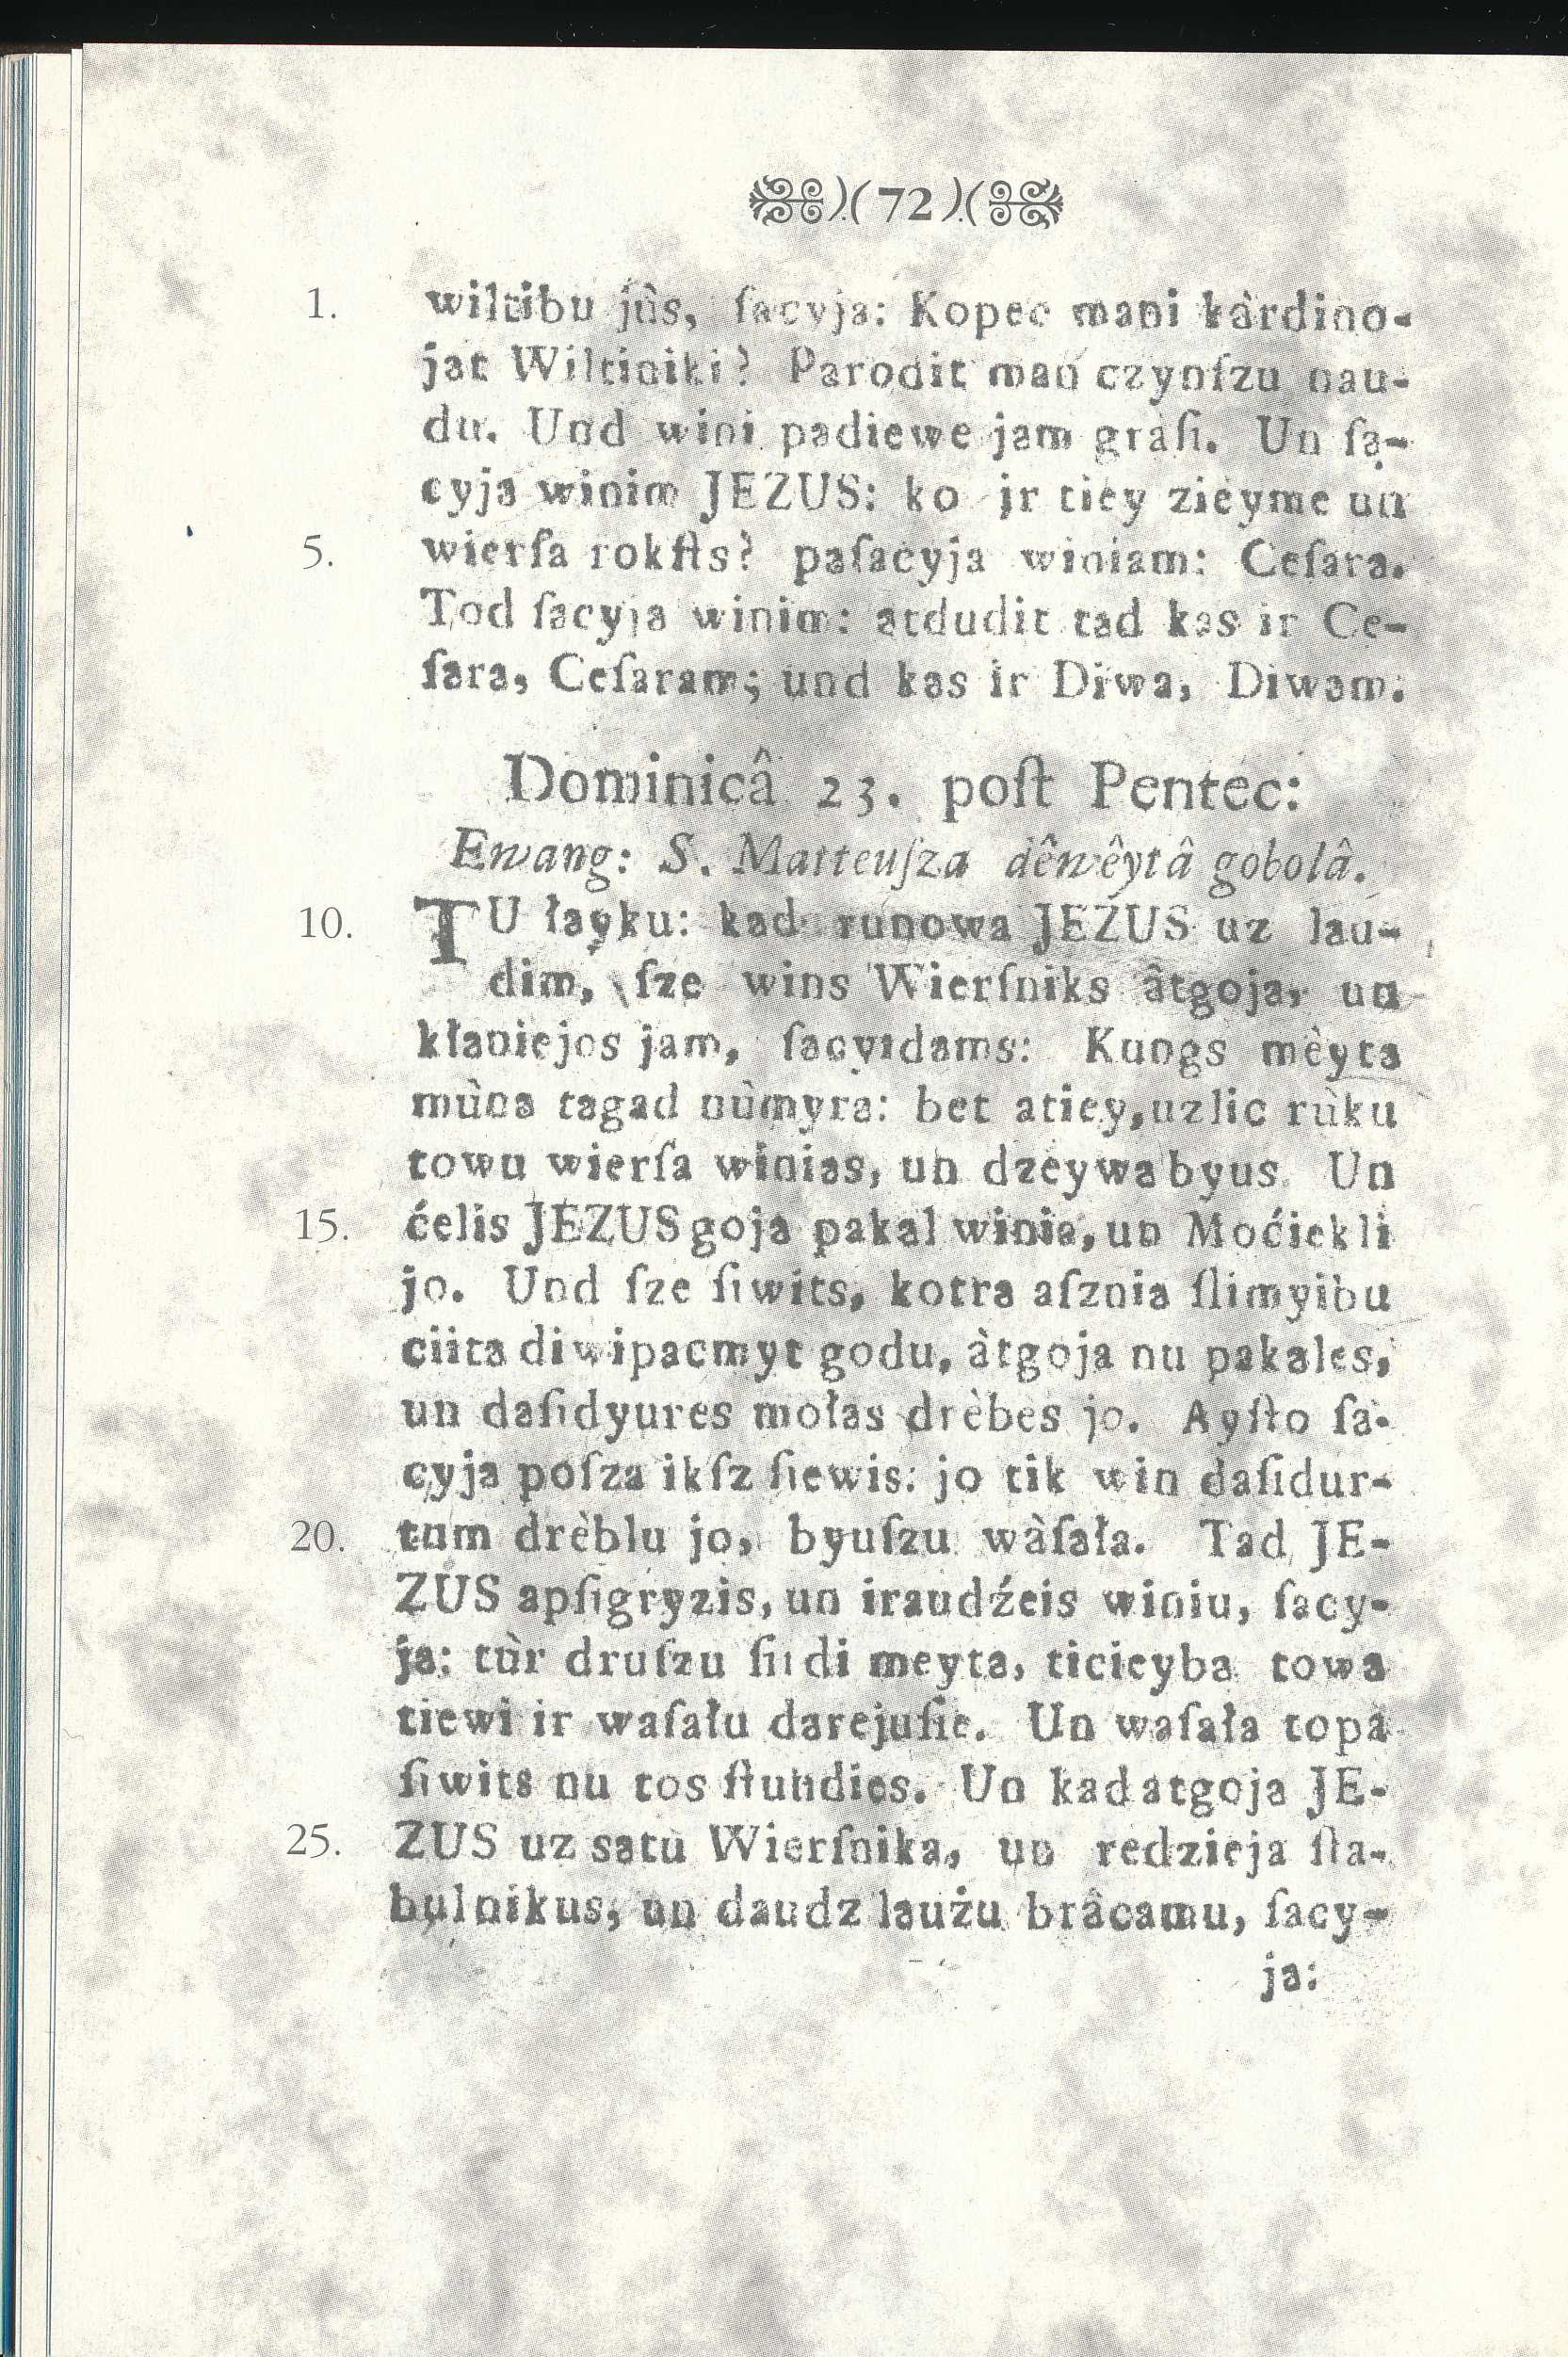 )(72)(
1. wiltibu jùs, ſacyja: Kopec mani kàrdino-
jat Wiltiniki? Parodit mań czynſzu nau-
du. Und wini padiewe jam gràſi. Un ſa-
cyja winim JEZUS: ko jr tiey zieyme un
5. wierſa rokſts? paſacyja winiam: Ceſara.
Tod ſacyja winim: atdudit tad kas ir Ce-
ſara, Ceſaram; und kas ir Diwa, Diwam.
Dominicâ 23. poſt Pentec:
Ewang: S. Matteuſza dêwêytâ gobolâ.
10. TU łayku: kad runowa JEZUS uz lau-
dim, ſze wins Wierſniks âtgoja, un
kłaniejos jam, ſacyidams: Kungs mèyta
mùna tagad nùmyra: bet atiey, uzlic rùku
towu wierſa winias, un dzeywa byus. Un
15. ćelis JEZUS goja pakal winia, un Moćiekli
jo. Und ſze ſiwits, kotra aſznia ſlimyibu
ciita diwipacmyt godu, àtgoja nu pakales,
un daſidyures mołas drèbes jo. Ayſto ſa-
cyja poſza ikſz ſiewis: jo tik win daſidur-
20. tum drèblu jo, byuſzu wàſała. Tad JE-
ZUS apſigryzis, un iraudźeis winiu, ſacy-
ja: tùr druſzu ſirdi meyta, ticieyba towa
tiewi ir waſału darejuſie. Un waſała topa
ſiwits nu tos ſtundies. Un kad atgoja JE-
25. ZUS uz satu Wierſnika, un redzieja ſta-
bulnikus, un daudz laużu brâcamu, ſacy-
ja: